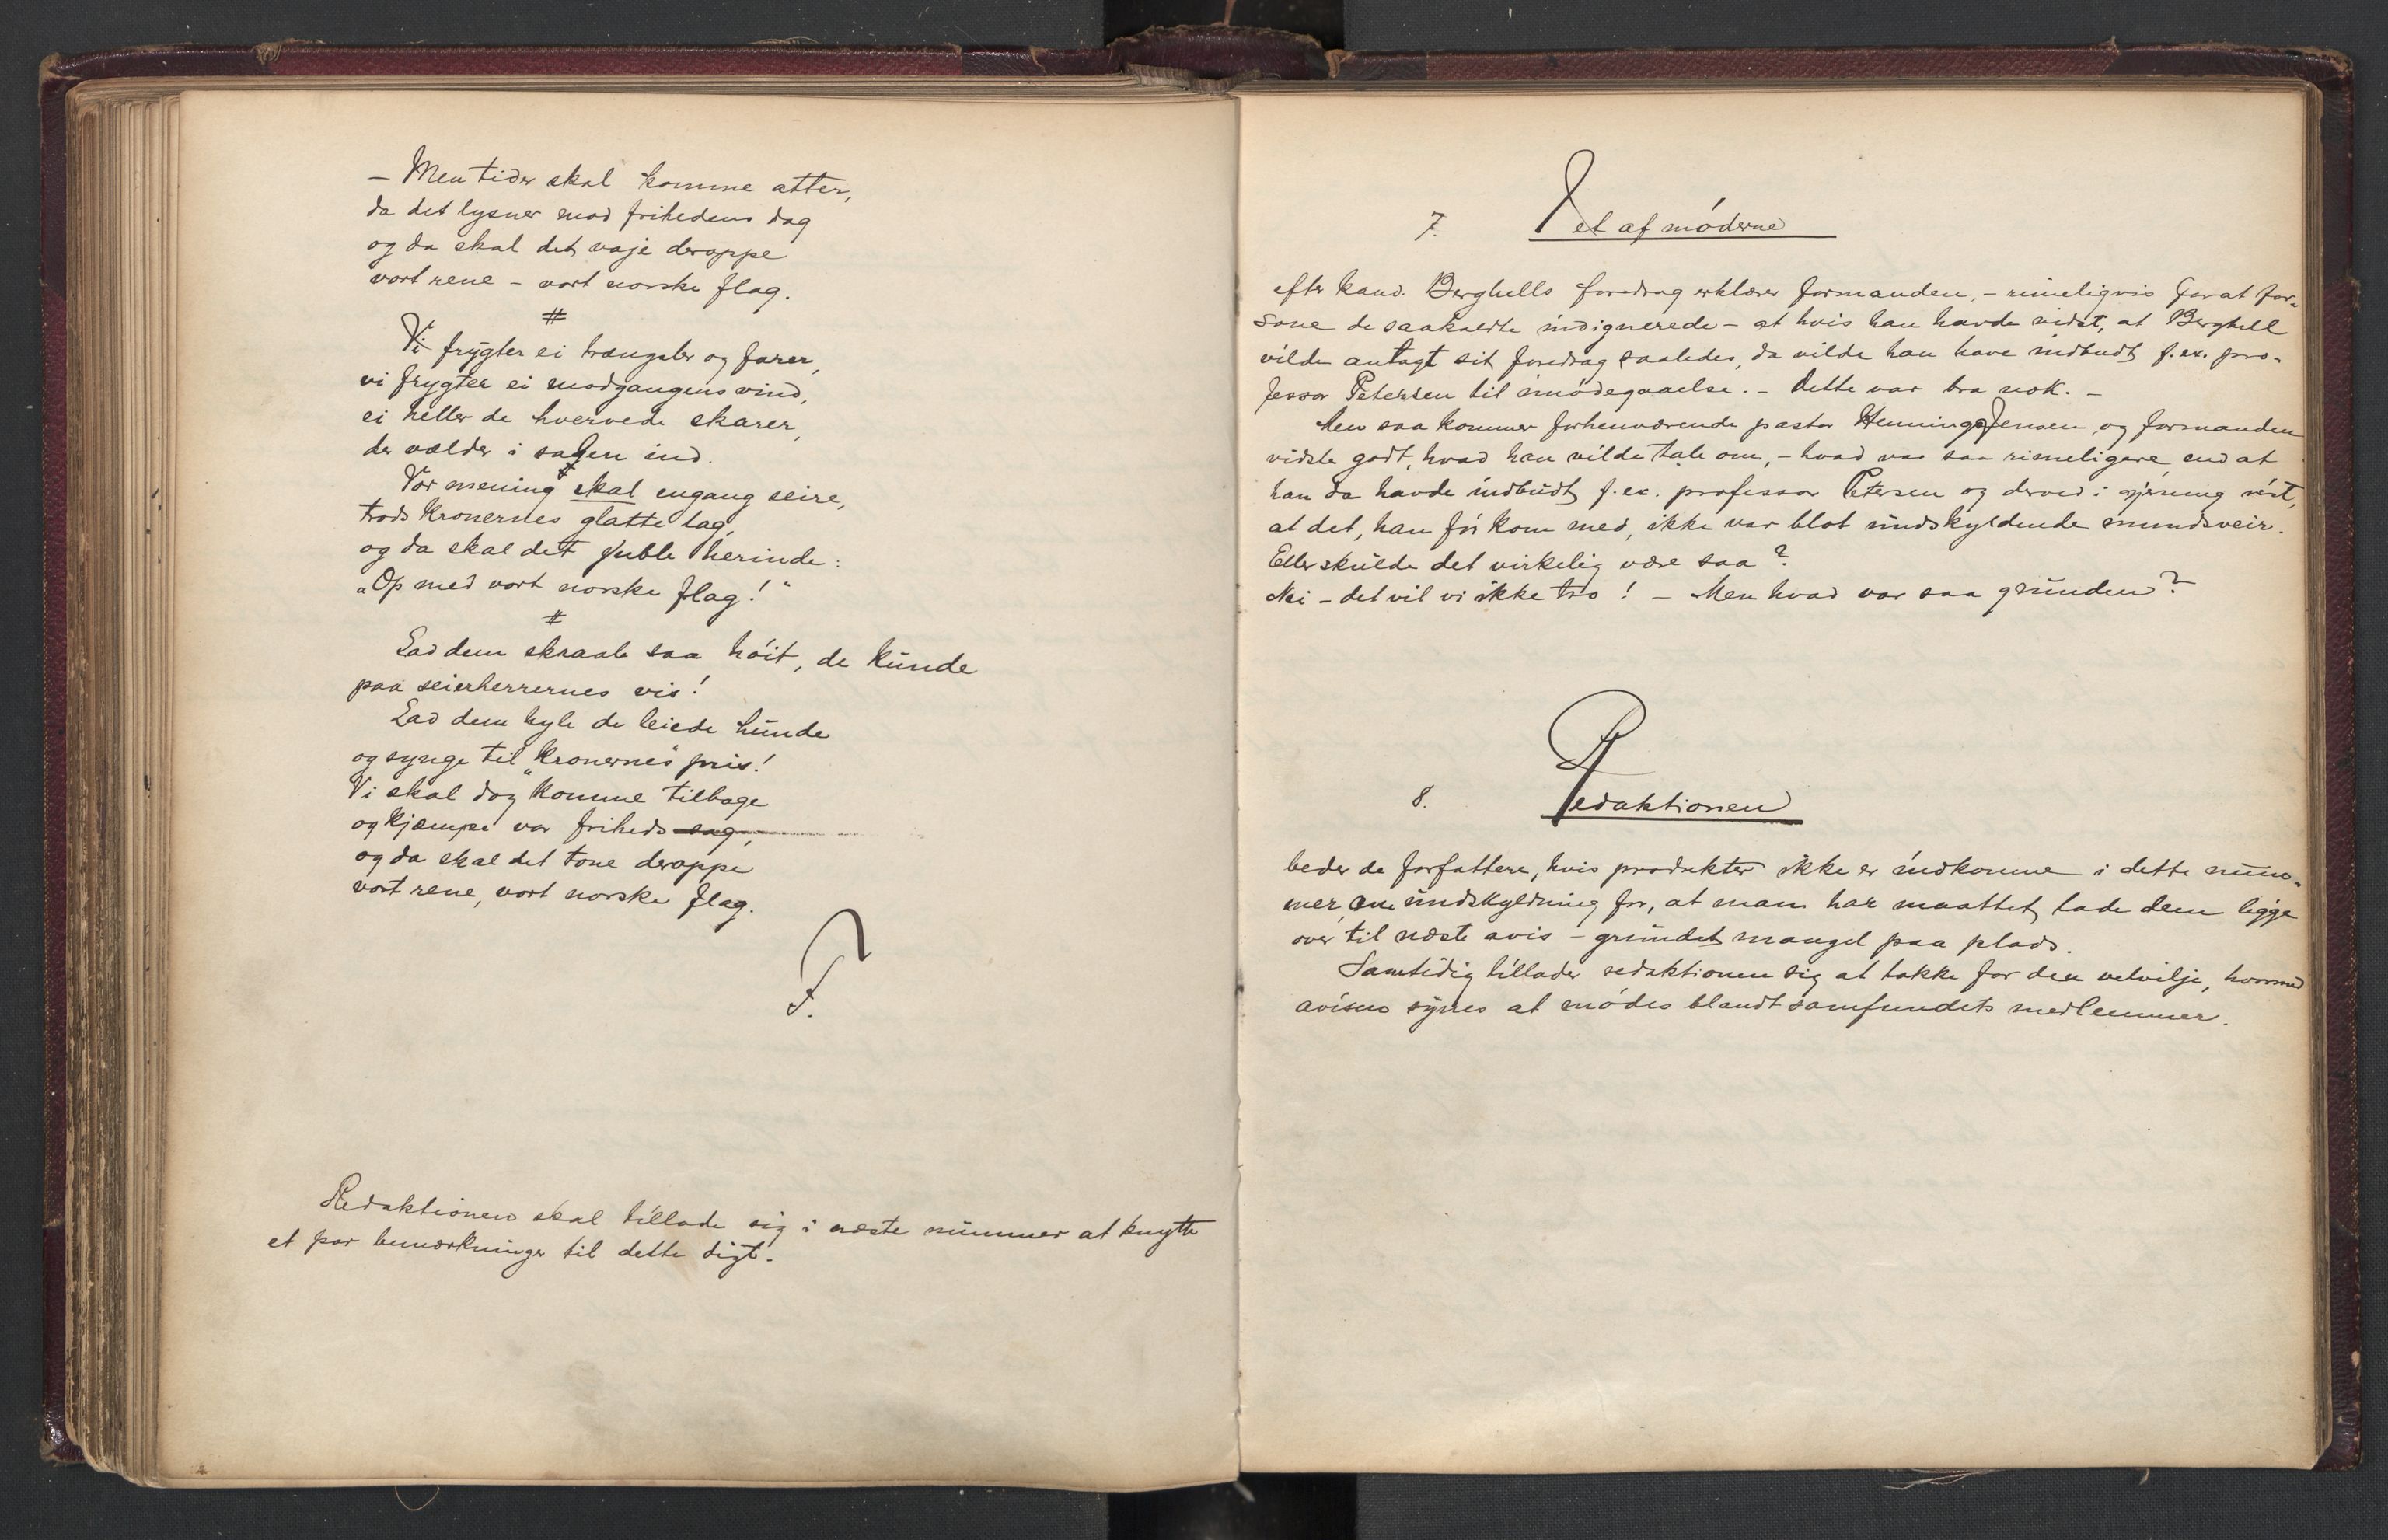 — Men tider skal komme atter,
da det lysner mod frihedens dag
og da skal det vaje deroppe
vort rene – vort norske flag.
#
Vi frygter ei trængsler og farer,
vi frygter ei modgangens vind,
ei heller de hvervede skarer,
der vælder i salen ind.
Vor mening skal engang seire,
trods kronernes glatte lag,
og da skal det juble herinde:
„Op med vort norske flag!"
#
Lad dem skraale saa høit, de kunde
paa seierherrernes vis!
Lad dem hyle de leiede hunde
og synge til „kronernes" pris!
Vi skal dog komme tilbage
og kjæmpe vor friheds sag,
og da skal det tone deroppe
vort rene, vort norske flag.
F.
Redaktionen skal tillade sig i næste nummer at knytte
et par bemærkninger til dette digt.
7. I et af møderne
efter kand. Berghells foredrag erklærer formanden, – rimeligvis for at for-
sone de saakaldte indignerede – at hvis han havde vidst, at Berghell
vilde antagt sit foredrag saaledes, da vilde han have indbudt f. ex. pro-
fessor Petersen til imødegaaelse. – Dette var bra nok. –
Men saa kommer forhenværende pastor Hennings Jensen, og formanden
vidste godt, hvad han vilde tale om, – hvad var saa rimeligere end at
han da havde indbudt f. ex. professor Petersen og derved i gjerning vist,
at det, han før kom med, ikke var blot undskyldende mundsveir.
Eller skulde det virkelig være saa?
Nei – det vil vi ikke tro! – Men hvad var saa grunden?
8. Redaktionen
beder de forfattere, hvis produkter ikke er indkomne i dette num-
mer, om undskyldning for, at man har maattet lade dem ligge
over til næste avis – grundet mangel paa plads.
Samtidig tillader redaktionen sig at takke for den velvilje, hvormed
avisen synes at mødes blandt samfundets medlemmer.